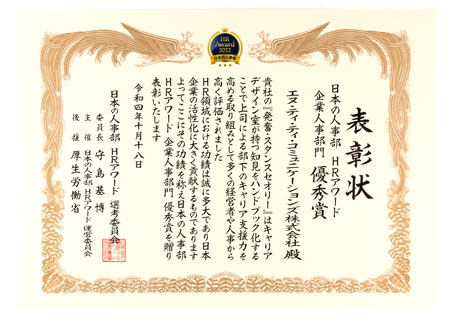 HR
Award
2022
日本の人事部
表彰状
日本の人事部 HRアワード
企業人事部門 優秀賞
エヌ・ティ・ティ・コミュニケーションズ株式会社 殿
貴社の『発奮・スタンスセオリー』はキャリア
デザイン室が持つ知見をハンドブック化する
ことで上司による部下のキャリア支援力を
高める取り組みとして多くの経営者や人事から
高く評価されました
HR領域における功績は誠に多大であり日本
企業の活性化に大きく貢献するものであります
よってここにその功績を称え日本の人事部
HRアワード企業人事部門優秀賞を贈り
表彰いたします
令和四年十月十八日
日本の人事部 HRアワード 選考委員会
委員長 守島基博
主催 日本の人事部「HRアワード」運営委員会
後援 厚生労働省